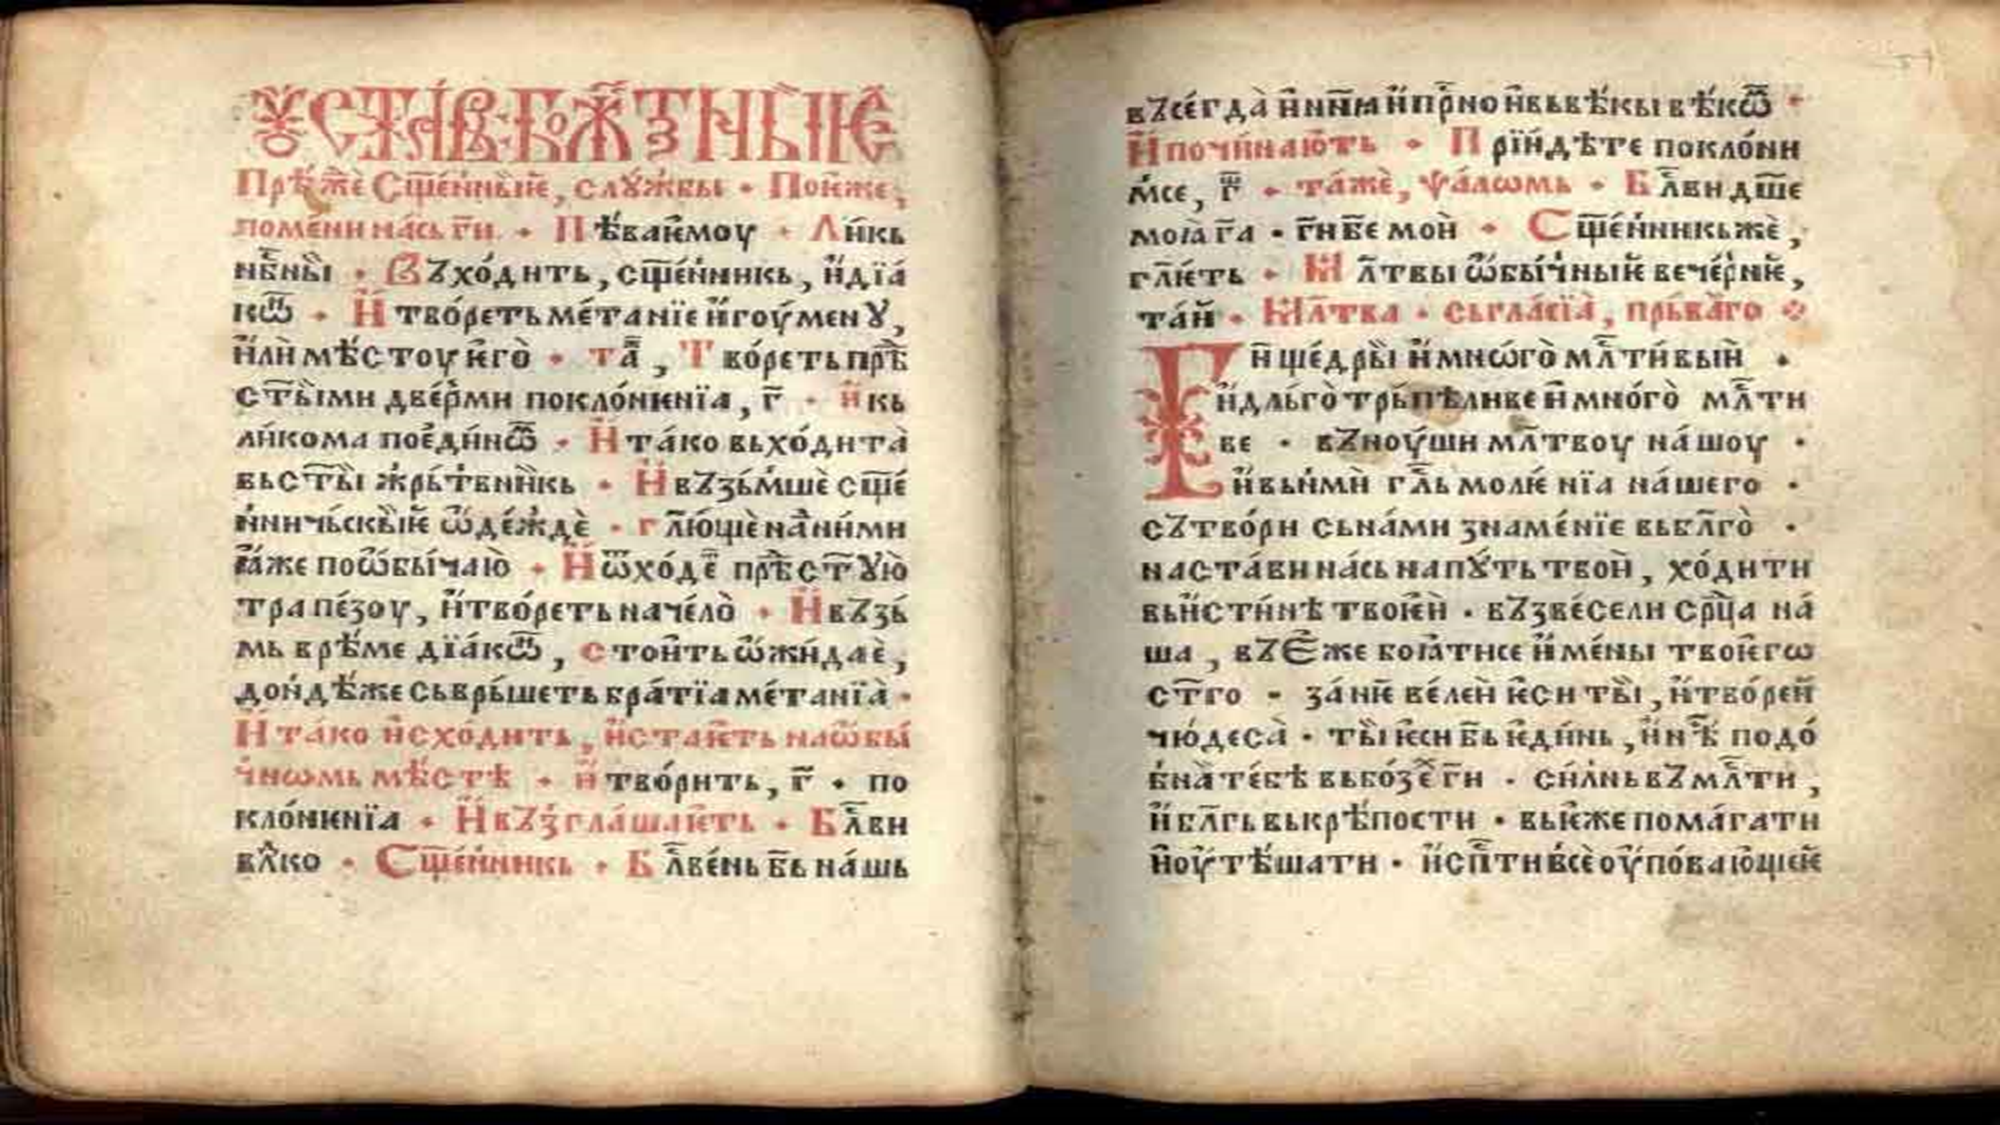 Оу҆ста́въ · бжⷭ҇тⷡ҇ныѥ
Прѣ́жⷣе Сщ҃е́нныѥ, слꙋ́жбы · Поне́же,
поме́ни на́сь гн҃и · Пѣ́ваѥмоу · Ли́кь
нбⷭ҇ны · Въхо́дить, сщ҃е́нникь, и҆ дїа́
кѡⷩ · И҆ тво́реть ме́танїе и҆гоу́менꙋ,
и҆лѝ мѣ́стоу ѥ҆го̀ · таⷤ, Тво́реть прѣⷣ
ст҃ыми две́рми покло́нѥнїа, г҃ · и҆ кь
ли́кома пое҆ди́нѡⷨ · И҆ та́ко вьхо́дита̀
вь ст҃ы жрь́твни́кь · И҆ възь́мшѐ сщ҃е́
нничь́скыѥ ѡ҆де́ждѐ · гл҃ю́щѐ на ни́ми
ꙗ҆́же по ѡ҆бы́чаю̀ · И҆ ѿхо́деⷮ прѣⷣ ст҃ꙋю̀
трапе́зоу, и҆ тво́реть наче́ло̀ · И҆ възь́
мь врѣ́ме дїа́кѡⷩ, стои́ть ѡ҆жи́даѐ,
до́ндѣже сьврь́шеть бра́тїа ме́танїа̀ ·
И҆ та́ко и҆схо́дить, и҆ ста́ѥть на ѡ҆бы́
чнѡмь мѣ́стѣ · и҆ тво́рить, г҃ · по
кло́нѥнїа · И҆ възгла́шаѥть · Бл҃ви
влⷣко · Сщ҃е́нникь · Бл҃ве́нь б҃ь на́шь
въсе́гда̀ и҆ нн҃ꙗ и҆ прⷭ҇но и҆ вь вѣ́кы вѣ́кѡⷨ ·
И҆ почина́ють · Прїи́дѣте покло́ни
мсе, г҃ · та́жѐ, ѱа́лѡмь · Бл҃ви дш҃е
моꙗ̀ г҃а · г҃и б҃е мои̇̀ · Сщ҃е́нникь же̇̀,
гл҃ѥ́ть · Мл҃твы ѡ҆бы́чныѥ вече́рнѥ,
та́й · Мл҃тва · сьгла́сїа̀, прь́ва́го
Г҃и ще́дры и҆ мнѡ́го̀ млⷭ҇ти́выи ·
и҆ дль́го̀трьпѣливе и҆ мно́го̀ млⷭ҇ти
ве · въноу́ши мл҃твоу на́шоу ·
и҆ вьнмѝ гла́ь молѥнїа на́шего ·
сътво́ри сь на́ми зна́ме́нїе вь бл҃го̀ ·
наста́ви на́сь на пꙋ́ть твои̇̀, хо́дити
вь и҆́сти́нѣ твоѥи̇̀ · възве́сели срⷣца на́
ша, въ Є҆́же боꙗ́тисе и҆ме́ны твоѥгѡ
ст҃го · за́нѥ ве́леи̇̀ ѥ҆си ты̀, и҆ тво́реи̇
чю́деса̀ · ты̀ ѥ҆си б҃ь ѥ҆ди́нь, и҆ нⷭ҇ѣ подо́
бна̀ те́бѣ вь бо́зѣⷯ г҃и · си́лнь въ млⷭ҇ти,
и҆ бл҃гь вь крѣ́пости · вь ѥ҆́же пома́гати
и҆ оу҆тѣ́шати · и҆ сп҃ти все̇̀ оу҆пова́ющеѥ